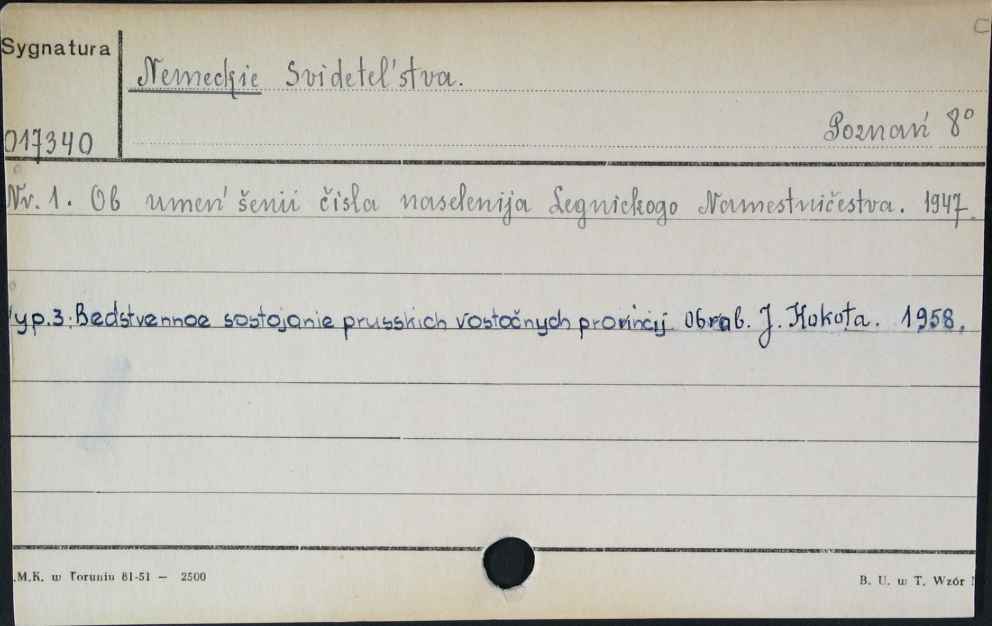 C
Sygnatura
Nemeckie Svidetel'stva.
Poznań 8°
017340
Nr. 1. Ob umen'šenii čisla naselenija Legnickogo Namestničestva. 1947.
Vyp.3. Bedstvennoe sostojanie prusskich vostočnych provincij. Obrab. J. Kokota. 1958.
.M.K. w Toruniu 81-51 — 2500
B. U. w T. Wzór